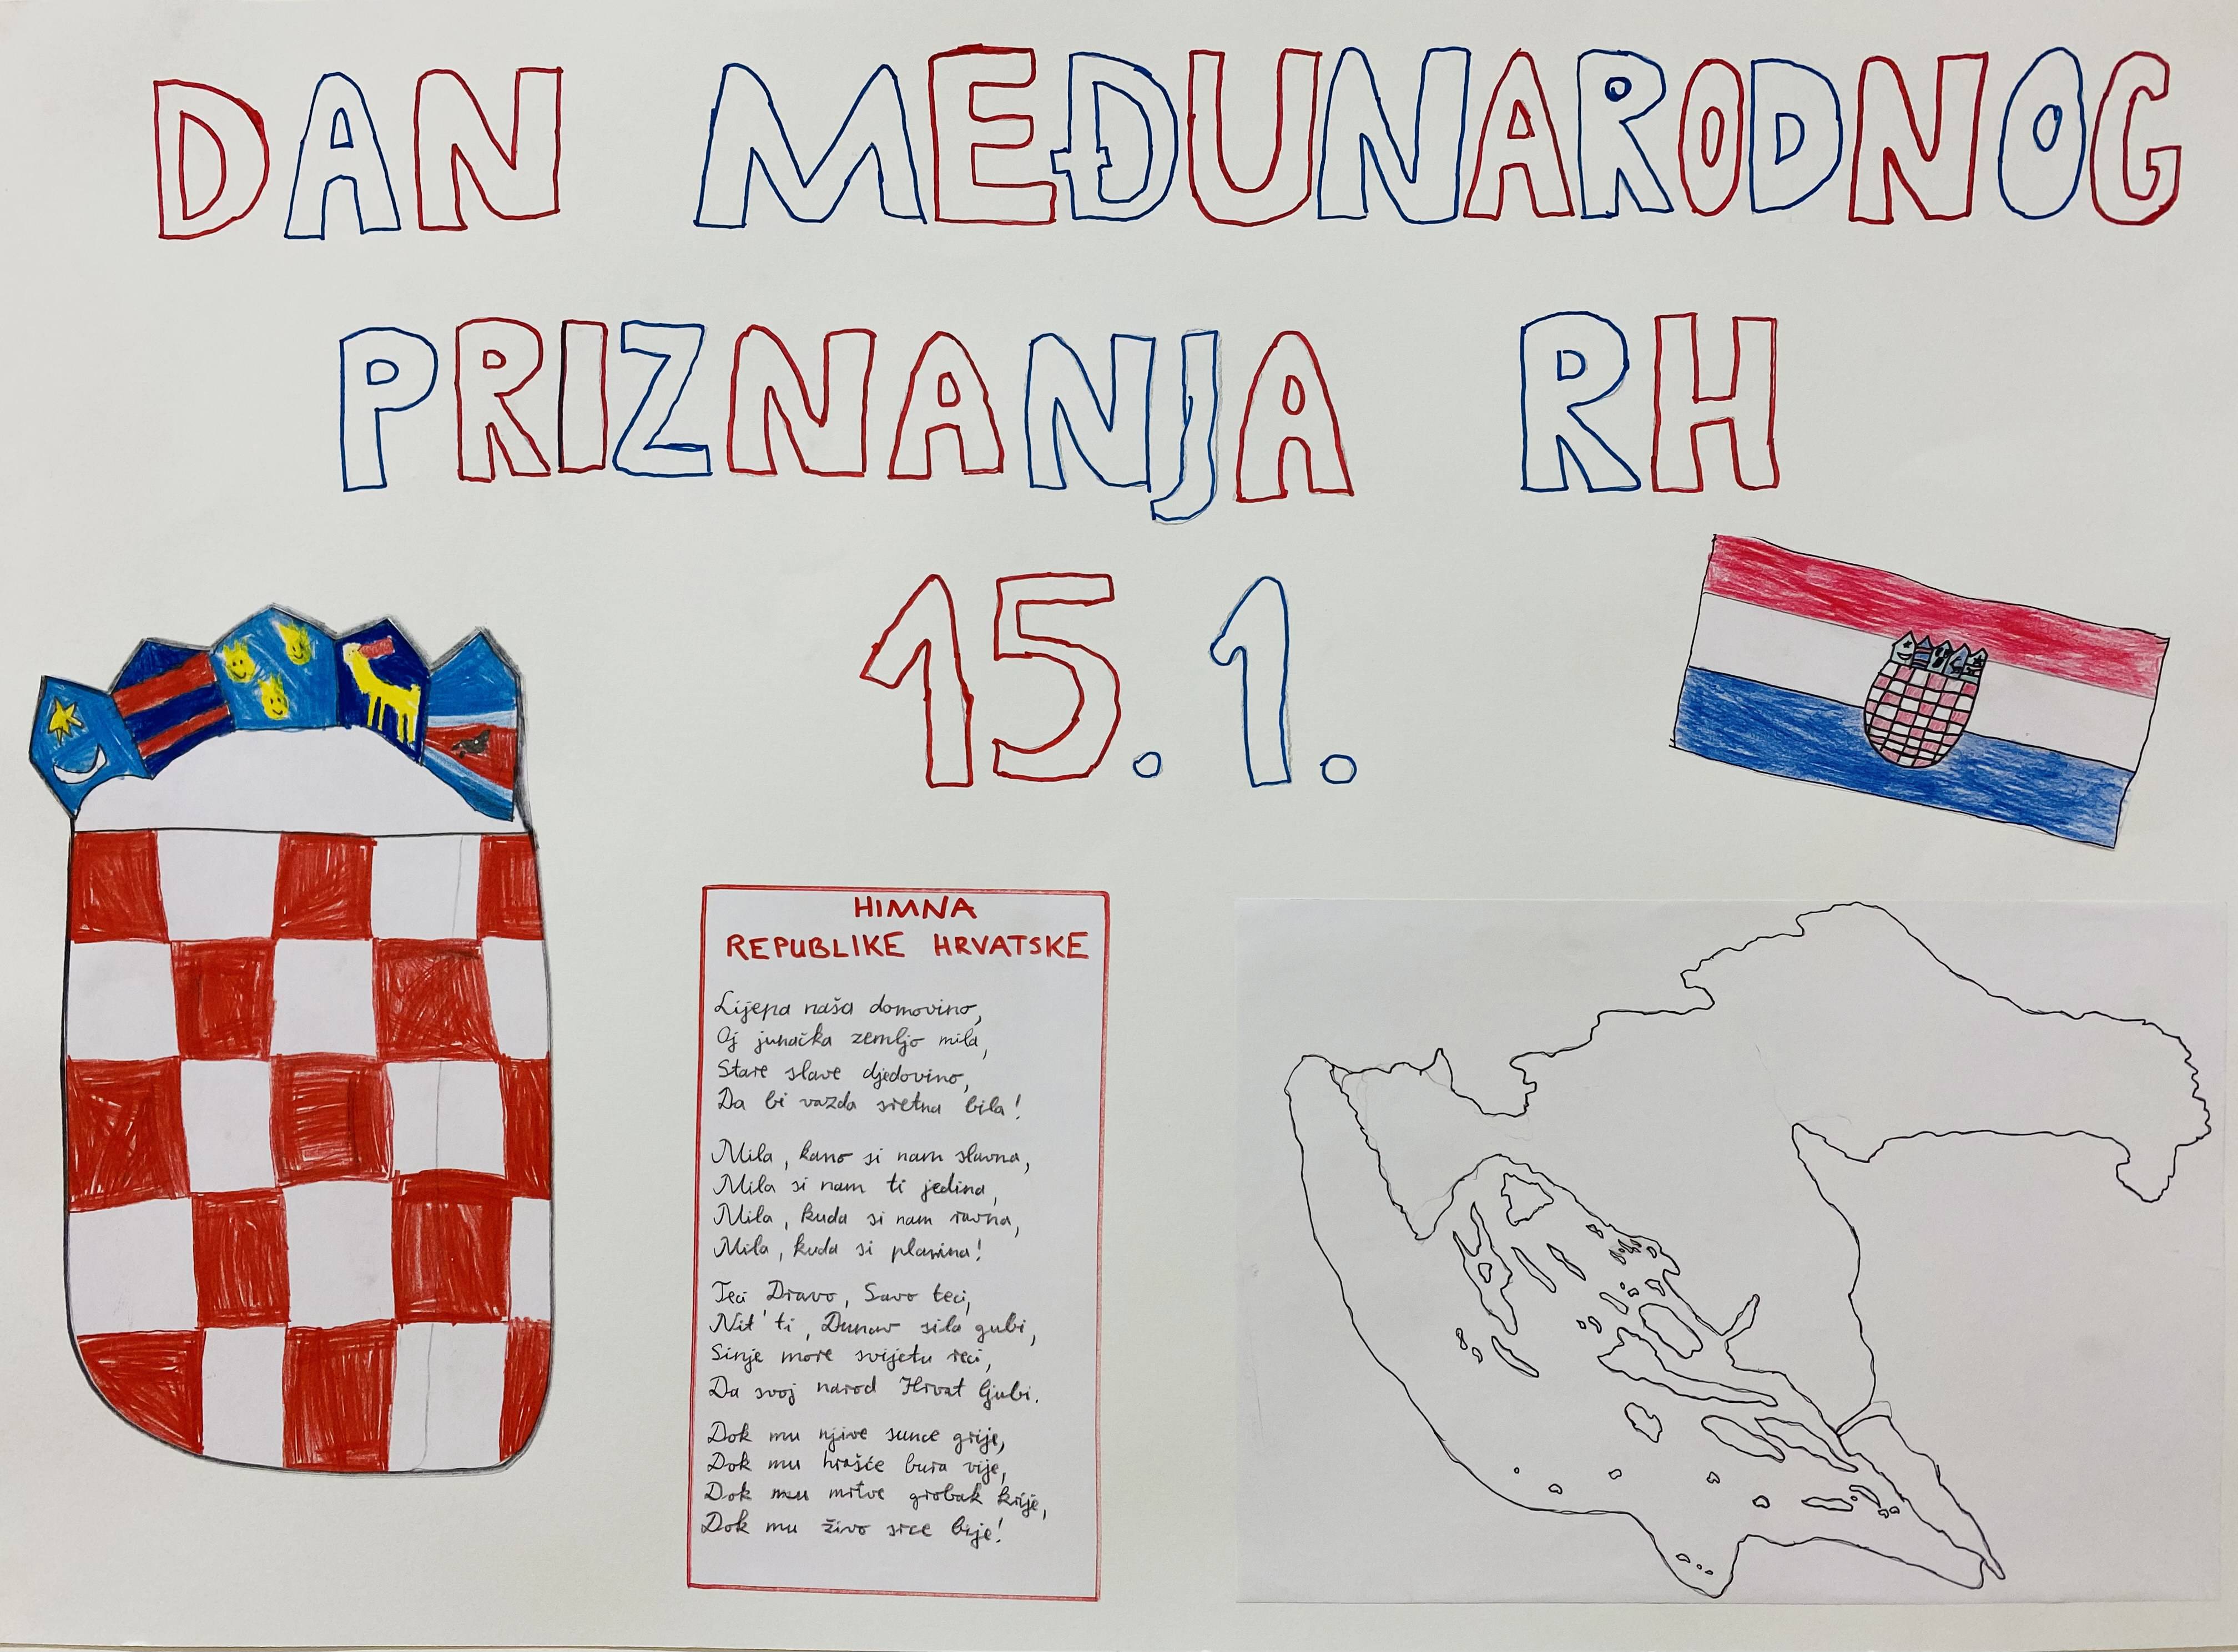 DAN MEĐUNARODNOG
PRIZNANJA RH
15.1.
HIMNA
REPUBLIKE HRVATSKE
Lijepa naša domovino,
Oj junačka zemljo mila,
Stare slave djedovino,
Da bi vazda sretna bila!
Mila, kano si nam slavna,
Mila si nam ti jedina,
Mila, kuda si nam ravna,
Mila, kuda si planina!
Teci Dravo, Savo teci,
Nit' ti, Dunav silu gubi,
Sinje more svijetu reci,
Da svoj narod Hrvat ljubi.
Dok mu njive sunce grije,
Dok mu hrašće bura vije,
Dok mu mrtve grobak krije,
Dok mu živo srce bije!